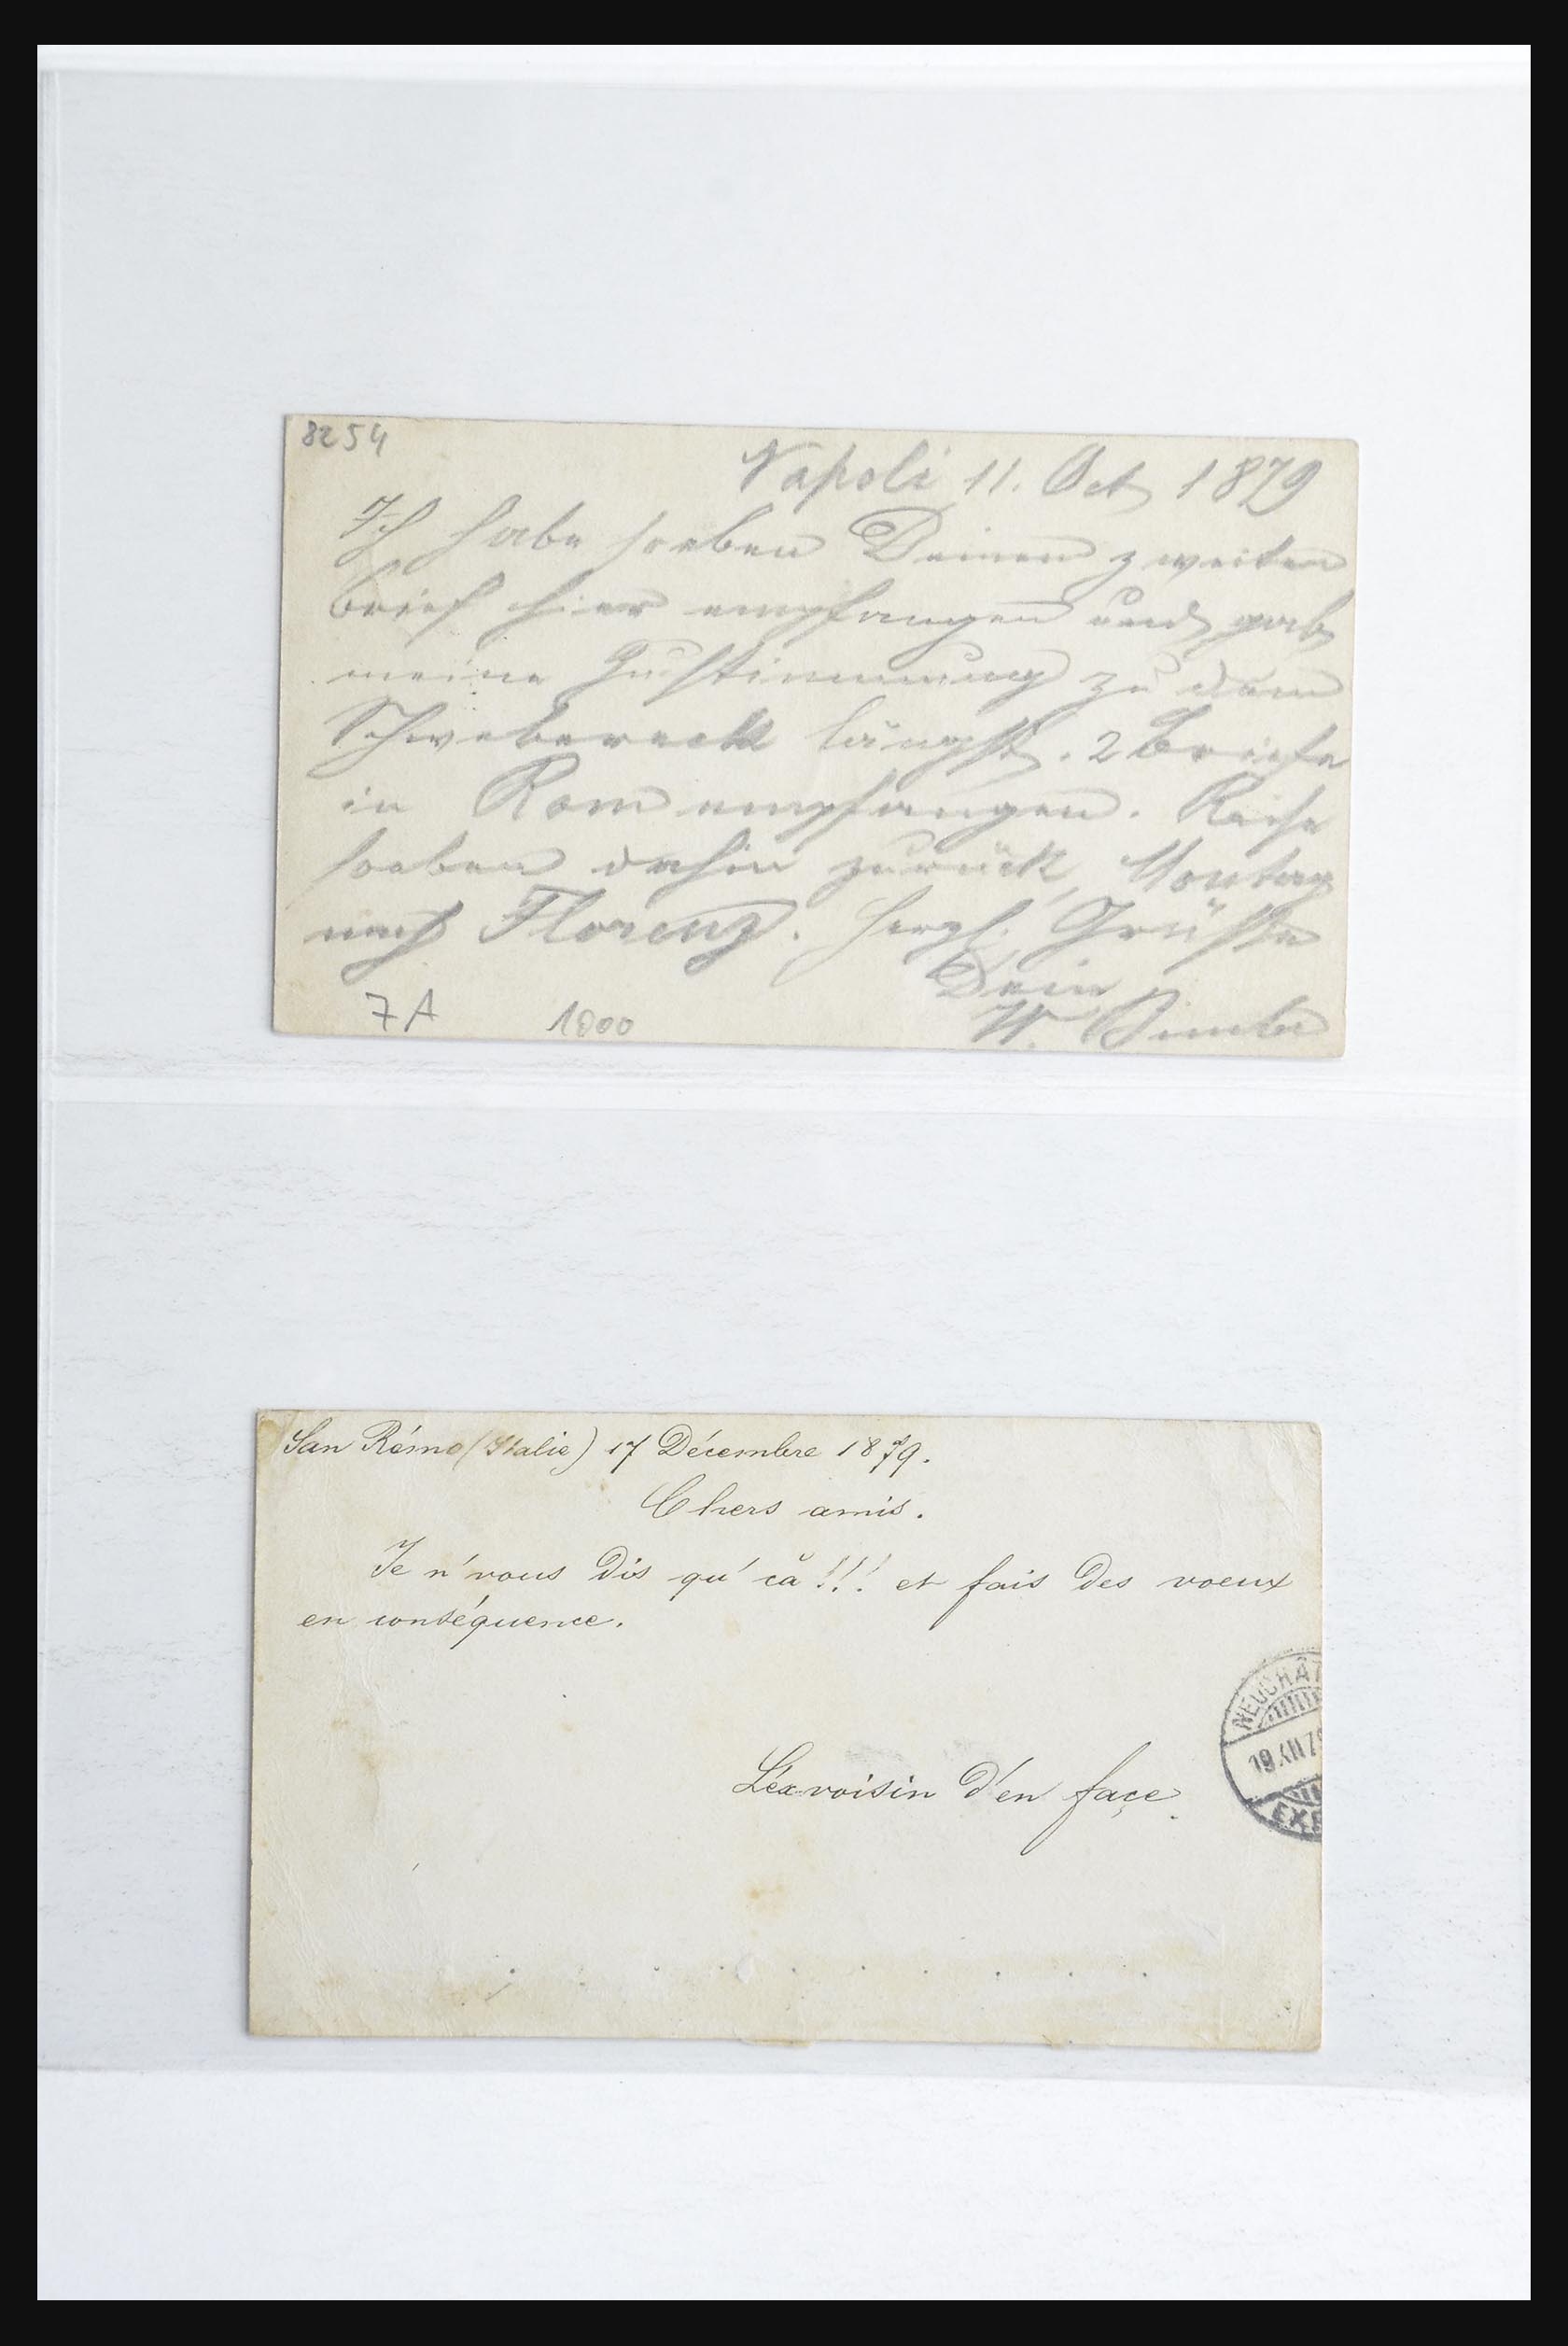 8254
Napoli 11. Oct 1879
Ich habe soeben Deinen zweiten
Brief hier empfangen und gab
meine Zustimmung zu dem
längst. 2 Briefe
in Rom empfangen. Reise
soeben dahin zurück, Montag
nach Florenz. Herzl. Grüße
Dein
W.
7A 1000
San Rémo (Italie) 17 Décembre 1879.
Chers amis.
Je n'vous dis qu'ça!!! et fais des voeux
en conséquence.
NEUCHÂT
19.XII.79
L'éx voisin d'en façe.
EXP